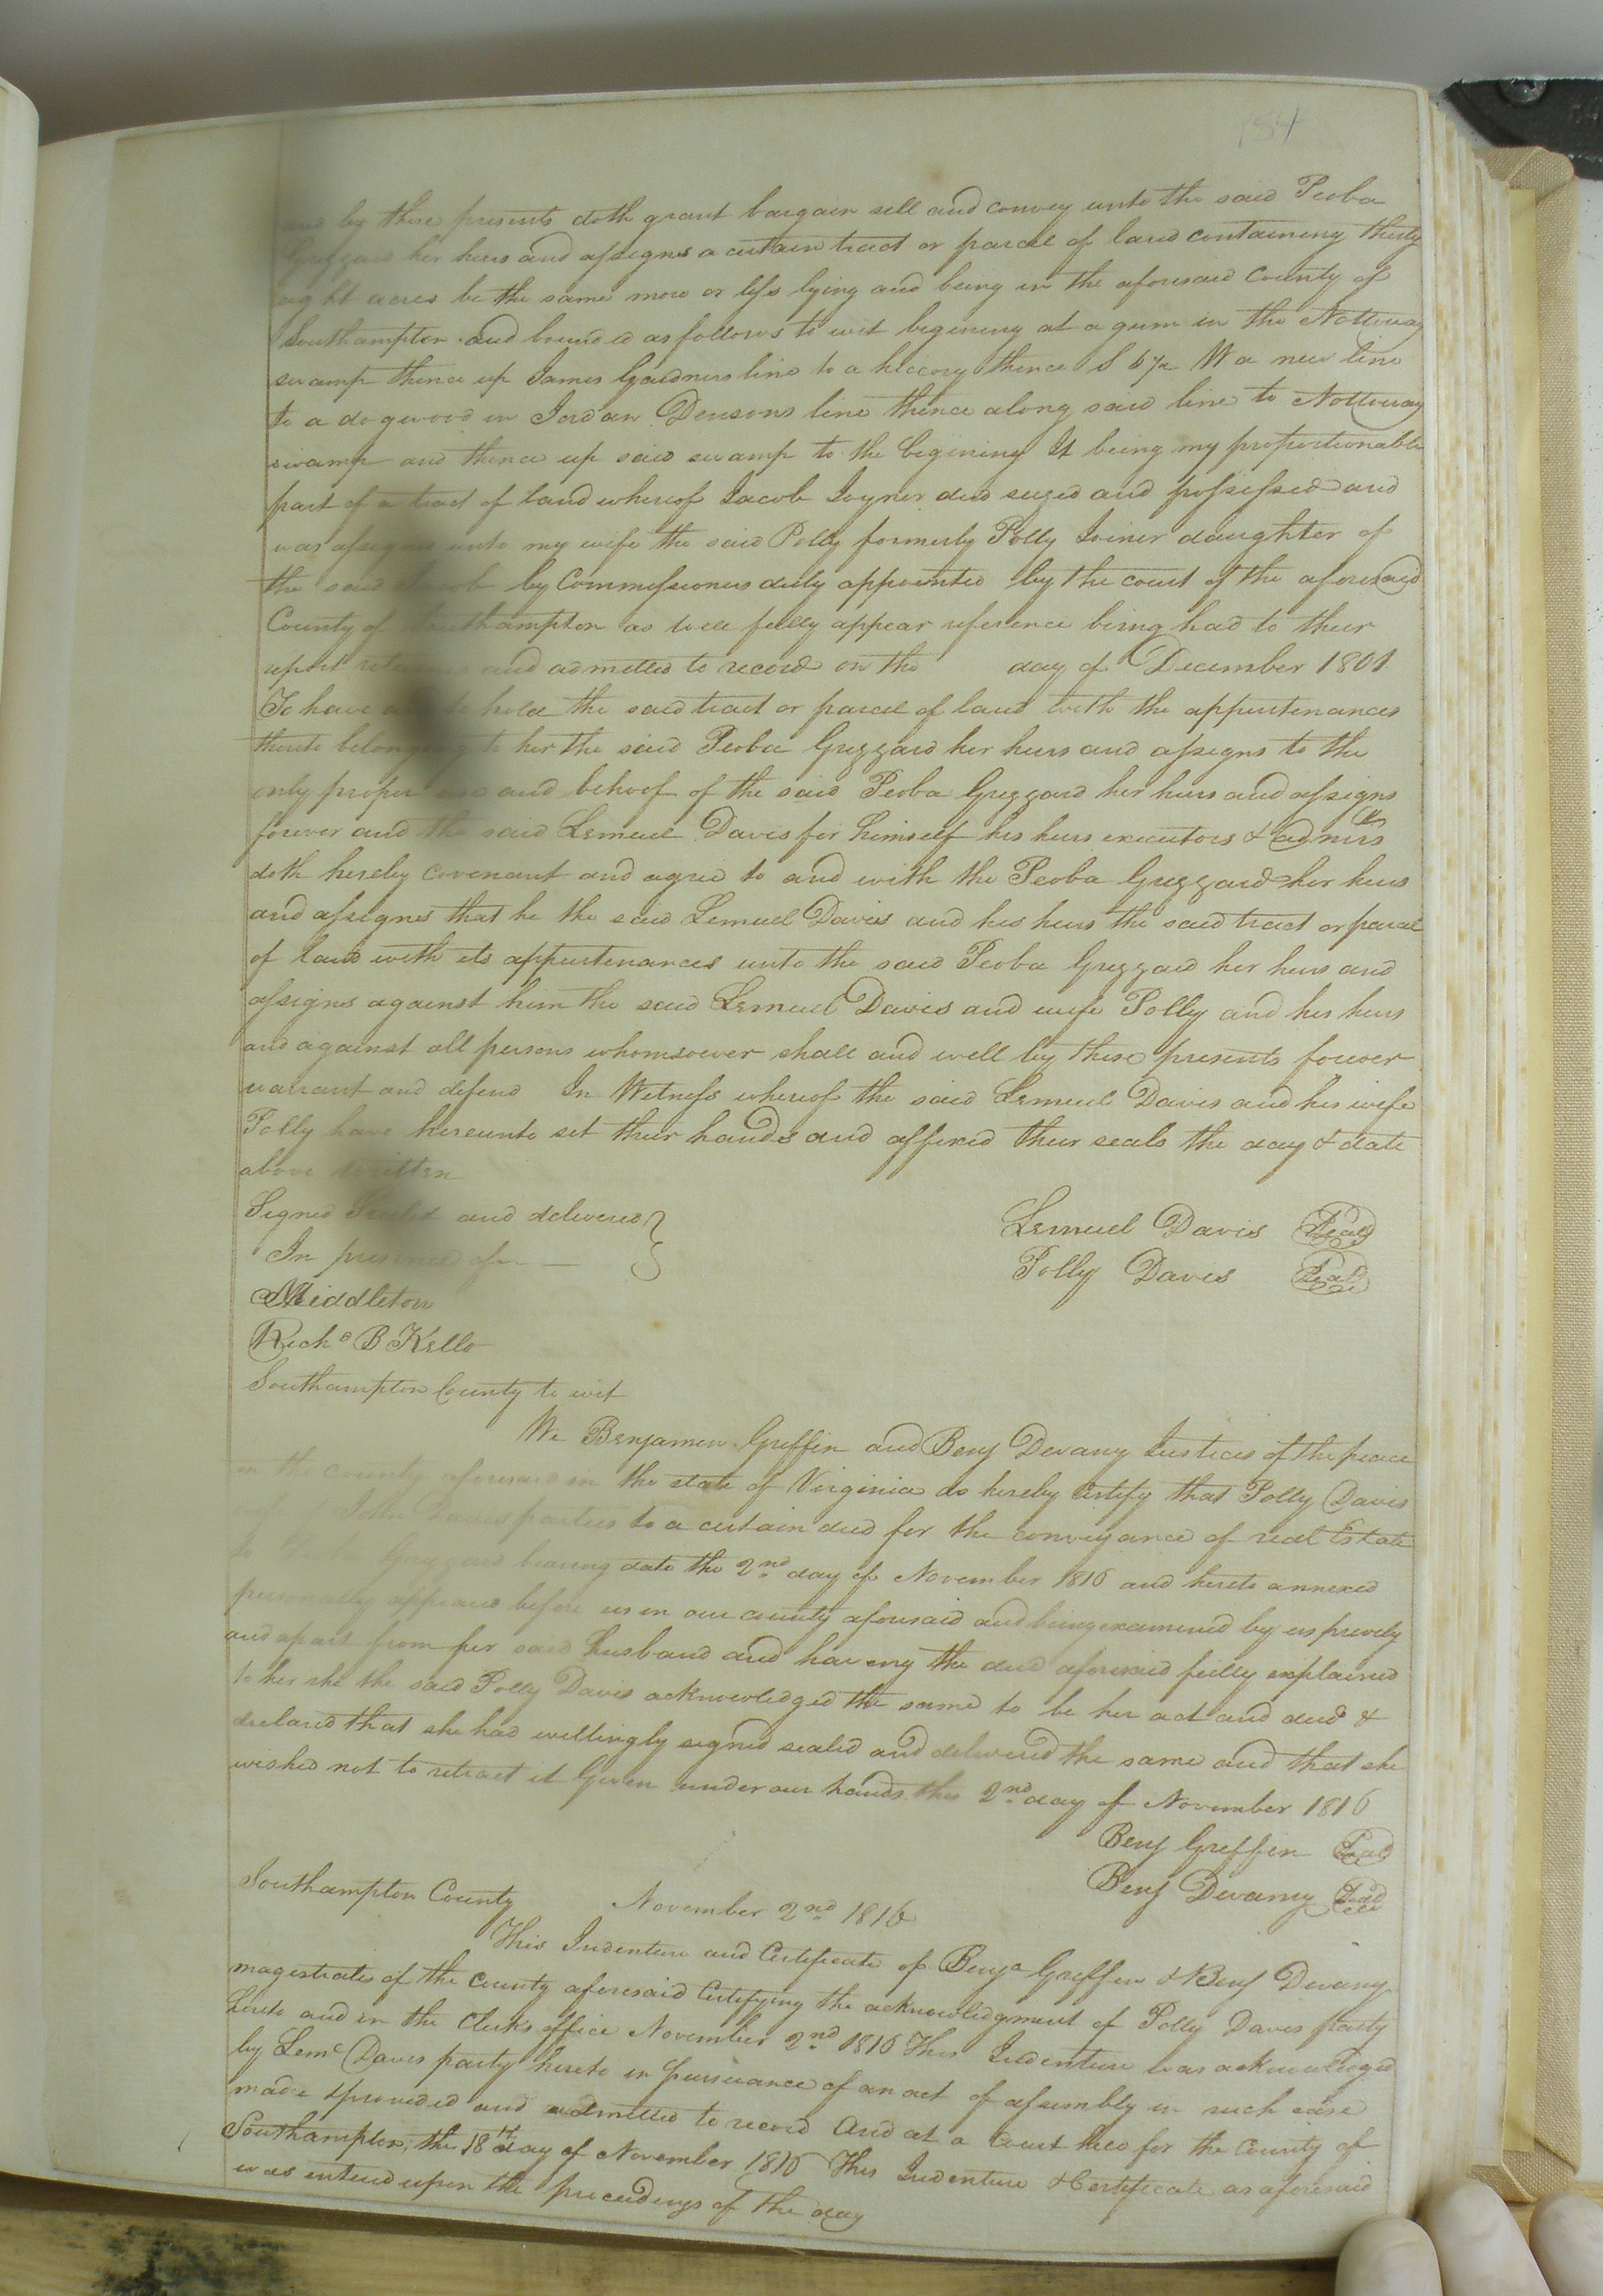 184
and by these presents doth grant bargain sell and convey unto the said Peoba
Grizzard her heirs and assigns a certain tract or parcel of land containing thirty
eight acres be the same more or less lying and being in the aforesaid County of
Southampton and bounded as follows to wit begining at a gum in the Nottoway
swamp thence up James Gardners line to a hiccory thence S W a new line
to a dogwood in Jordan Densons line thence along said line to Nottoway
swamp and thence up said swamp to the begining It being my proportionable
part of a tract of land whereof Jacob Joyner died siezed and possessed and
was assigned unto my wife the said Polly formerly Polly Joiner daughter of
the said Jacob by Commissioners duly appointed by the court of the aforesaid
County of Southampton as will fully appear reference being had to their
report returned and admitted to record on the day of December 1801
To have and to hold the said tract or parcel of land with the appurtenances
thereto belonging to her the said Peoba Grizzard her heirs and assigns to the
only proper use and behoof of the said Peoba Grizzard her heirs and assigns
forever and the said Lemuel Davis for himself his heirs executors & admrs
doth hereby covenant and agree to and with the Peoba Grizzard her heirs
and assignes that he the said Lemuel Davis and his heirs the said tract or parcel
of land with its appurtenances unto the said Peoba Grizzard her heirs and
assigns against him the said Lemuel Davis and wife Polly and his heirs
and against all persons whomsoever shall and will by these presents forever
warrant and defend In Witness whereof the said Lemuel Davis and his wife
Polly have hereunto set their hands and affixed their seals the day & date
above written
Signed Sealed and delivered
In presence of
Lemuel Davis Seal
Polly Davis Seal
Middleton
Richd B Kello
Southampton County to wit
We Benjamin Griffin and Benj Devany Justices of the peace
in the county aforesaid in the state of Virginia do hereby certify that Polly Davis
John Davis parties to a certain deed for the conveyance of real Estate
to Grizzard bearing date the 2nd day of November 1816 and hereto annexed
personally appeared before us in our county aforesaid and being examined by us privily
and apart from her said husband and having the deed aforesaid fully explained
to her she the said Polly Davis acknowledged the same to be her act and deed &
declared that she had willingly signed sealed and delivered the same and that she
wished not to retract it Given under our hands this 2nd day of November 1816
Benj Griffin Seal
Benj Devany Seal
Southampton County November 2nd 1816
This Indenture and Certificate of Benja Griffin & Benj Devany
magestrates of the County aforesaid Certifying the acknowledgment of Polly Davis party
hereto and in the Clerks office November 2nd 1816 This Indenture was acknowledged
by Leml Davis party hereto in pursuance of an act of assembly in such case
made & provided and admitted to record And at a Court held for the County of
Southampton, the 18th day of November 1816 This Indenture & Certificate as aforesaid
was entered upon the proceedings of the day